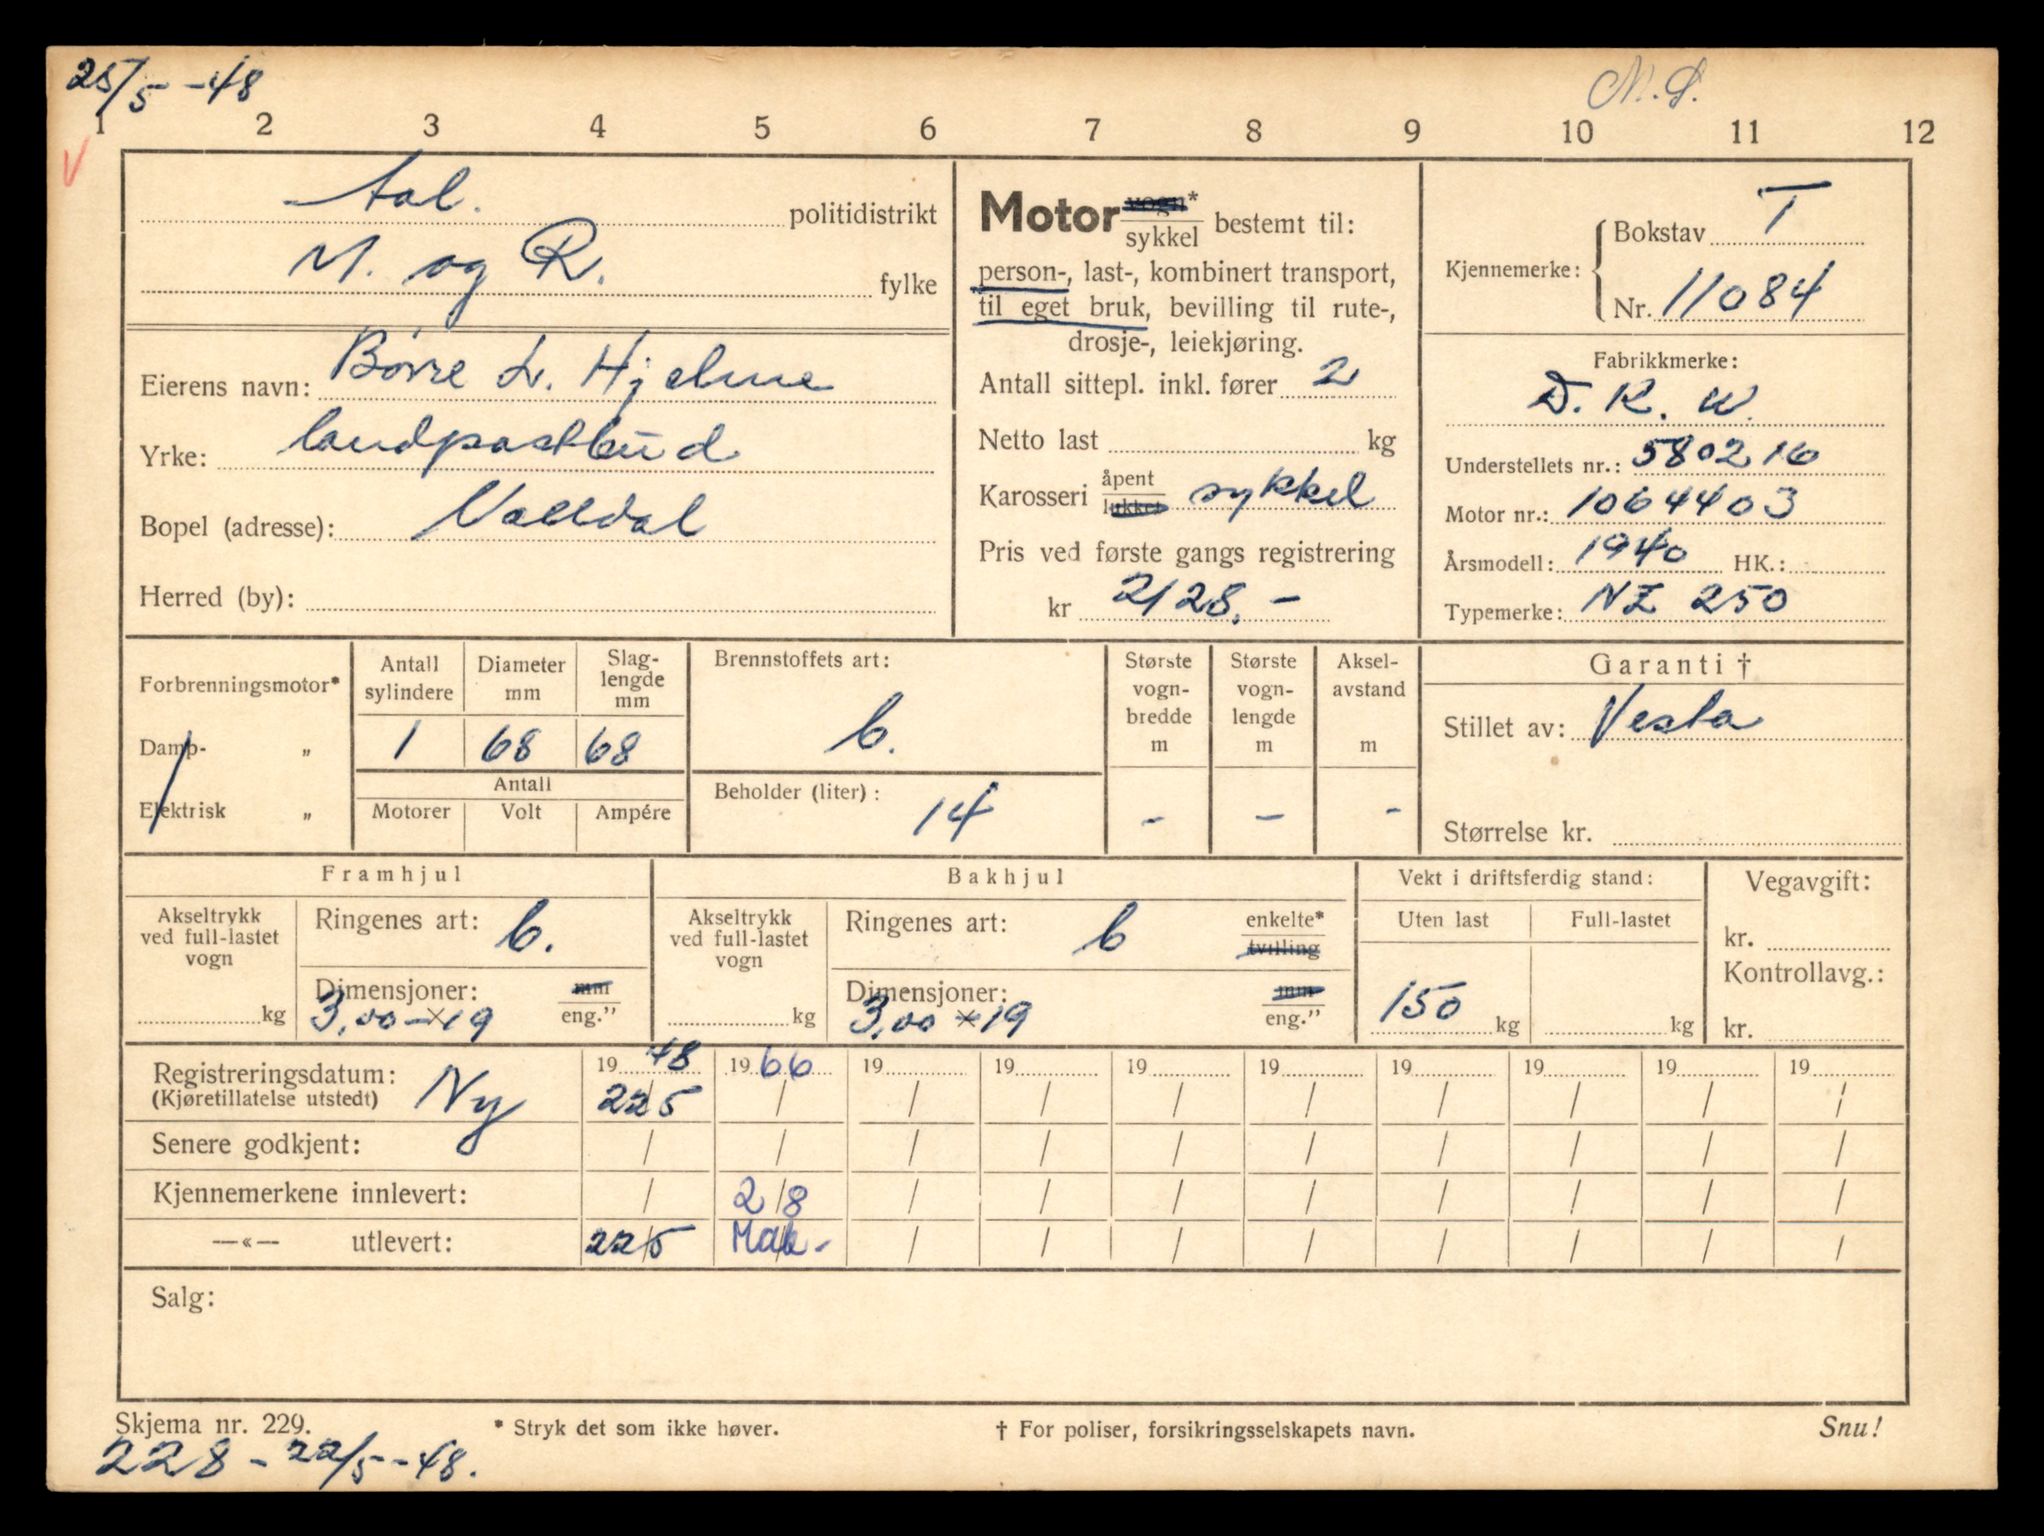 25/5 -48
N.S.
1 2 3 4 5 6 7 8 9 10 11 12
V
Aal. politidistrikt
M. og R. fylke
Eierens navn: Børre L. Hjelme
Yrke: landpostbud
Bopel (adresse): Valldal
Herred (by):
Motor vogn*
sykkel bestemt til:
person-, last-, kombinert transport,
til eget bruk, bevilling til rute-,
drosje-, leiekjøring.
Antall sittepl. inkl. fører 2
Netto last kg
Karosseri åpent
lukket sykkel
Pris ved første gangs registrering
kr 2128.-
Kjennemerke: Bokstav T
Nr. 11084
Fabrikkmerke:
D. K. W.
Understellets nr.: 580216
Motor nr.: 1064403
Årsmodell: 1940 HK.:
Typemerke: NZ 250
Forbrenningsmotor*
Damp- „
Elektrisk „
Antall sylindere Diameter mm Slag-lengde mm
1 68 68
Antall
Motorer Volt Ampére
Brennstoffets art:
b.
Beholder (liter): 14
Største vogn-bredde m
-
Største vogn-lengde m
-
Aksel-avstand m
-
Garanti †
Stillet av: Vesta
Størrelse kr.
Framhjul
Akseltrykk ved full-lastet vogn
kg
Ringenes art: b.
Dimensjoner: mm
3,00-×19 eng.”
Bakhjul
Akseltrykk ved full-lastet vogn
kg
Ringenes art: b enkelte*
tvilling
Dimensjoner: mm
3,00 × 19 eng.”
Vekt i driftsferdig stand:
Uten last Full-lastet
150 kg kg
Vegavgift:
kr.
Kontrollavg.:
kr.
Registreringsdatum: Ny 1948 1966 19 19 19 19 19 19 19 19
(Kjøretillatelse utstedt) 22/5 / / / / / / / / /
Senere godkjent: / / / / / / / / / /
Kjennemerkene innlevert: / 2/8 / / / / / / / /
—«— utlevert: 22/5 Mak- / / / / / / / /
Salg:
Skjema nr. 229. * Stryk det som ikke høver. † For poliser, forsikringsselskapets navn. Snu!
228 - 22/5 -48.